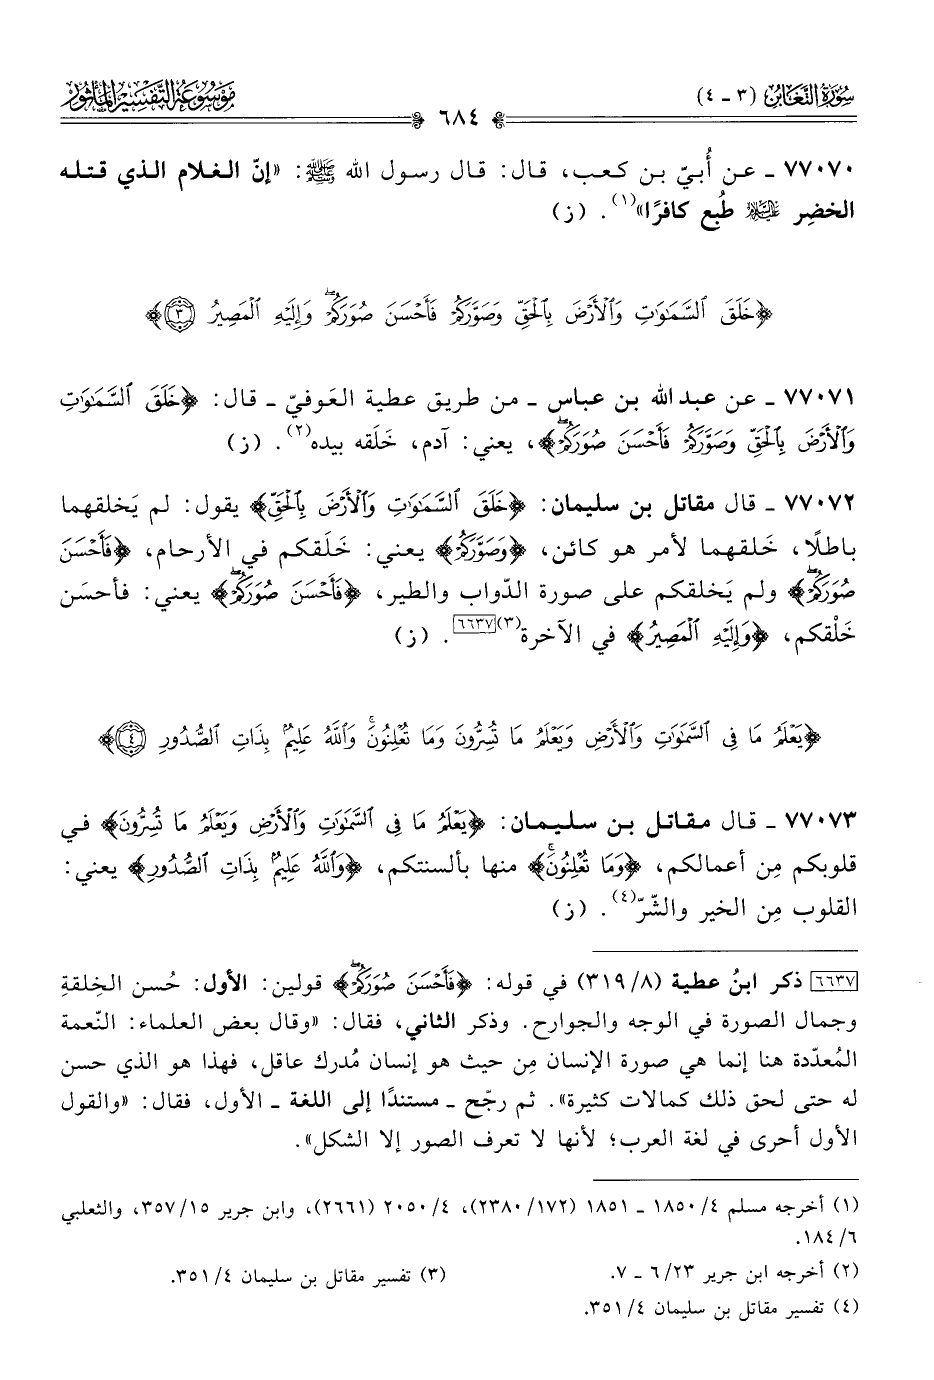 سُورَةُ التَّغَابُن (٣ - ٤)
مَوْسُوعَةُ التَّفْسِيرِ المَأْثُور
٦٨٤
٧٧٠٧٠ - عن أُبيّ بن كعب، قال: قال رسول الله ﷺ: «إنّ الغلام الذي قتله
الخضِر عليه السلام طُبع كافرًا»(١). (ز)
﴿خَلَقَ ٱلسَّمَٰوَٰتِ وَٱلۡأَرۡضَ بِٱلۡحَقِّ وَصَوَّرَكُمۡ فَأَحۡسَنَ صُوَرَكُمۡۖ وَإِلَيۡهِ ٱلۡمَصِيرُ ٣﴾
٧٧٠٧١ - عن عبد الله بن عباس - من طريق عطية العَوفيّ - قال: ﴿خَلَقَ ٱلسَّمَٰوَٰتِ
وَٱلۡأَرۡضَ بِٱلۡحَقِّ وَصَوَّرَكُمۡ فَأَحۡسَنَ صُوَرَكُمۡۖ﴾، يعني: آدم، خَلَقه بيده(٢). (ز)
٧٧٠٧٢ - قال مقاتل بن سليمان: ﴿خَلَقَ ٱلسَّمَٰوَٰتِ وَٱلۡأَرۡضَ بِٱلۡحَقِّ﴾ يقول: لم يَخلقهما
باطلًا، خَلقهما لأمر هو كائن، ﴿وَصَوَّرَكُمۡ﴾ يعني: خَلَقكم في الأرحام، ﴿فَأَحۡسَنَ
صُوَرَكُمۡۖ﴾ ولم يَخلقكم على صورة الدّواب والطير، ﴿فَأَحۡسَنَ صُوَرَكُمۡۖ﴾ يعني: فأحسَن
خَلْقكم، ﴿وَإِلَيۡهِ ٱلۡمَصِيرُ﴾ في الآخرة(٣)[٦٦٣٧]. (ز)
﴿يَعۡلَمُ مَا فِي ٱلسَّمَٰوَٰتِ وَٱلۡأَرۡضِ وَيَعۡلَمُ مَا تُسِرُّونَ وَمَا تُعۡلِنُونَۚ وَٱللَّهُ عَلِيمُۢ بِذَاتِ ٱلصُّدُورِ ٤﴾
٧٧٠٧٣ - قال مقاتل بن سليمان: ﴿يَعۡلَمُ مَا فِي ٱلسَّمَٰوَٰتِ وَٱلۡأَرۡضِ وَيَعۡلَمُ مَا تُسِرُّونَ﴾ في
قلوبكم مِن أعمالكم، ﴿وَمَا تُعۡلِنُونَۚ﴾ منها بألسنتكم، ﴿وَٱللَّهُ عَلِيمُۢ بِذَاتِ ٱلصُّدُورِ﴾ يعني:
القلوب مِن الخير والشّرّ(٤). (ز)
[٦٦٣٧] ذكر ابنُ عطية (٣١٩/٨) في قوله: ﴿فَأَحۡسَنَ صُوَرَكُمۡۖ﴾ قولين: الأول: حُسن الخِلقةِ
وجمال الصورة في الوجه والجوارح. وذكر الثاني، فقال: «وقال بعض العلماء: النّعمة
المُعدّدة هنا إنما هي صورة الإنسان مِن حيث هو إنسان مُدرك عاقل، فهذا هو الذي حسن
له حتى لحق ذلك كمالات كثيرة». ثم رجّح - مستندًا إلى اللغة - الأول، فقال: «والقول
الأول أحرى في لغة العرب؛ لأنها لا تعرف الصور إلا الشكل».
(١) أخرجه مسلم ٤/ ١٨٥٠ - ١٨٥١ (١٧٢/ ٢٣٨٠)، ٤/ ٢٠٥٠ (٢٦٦١)، وابن جرير ١٥/ ٣٥٧، والثعلبي
٦/ ١٨٤.
(٢) أخرجه ابن جرير ٢٣/ ٦ - ٧. (٣) تفسير مقاتل بن سليمان ٤/ ٣٥١.
(٤) تفسير مقاتل بن سليمان ٤/ ٣٥١.